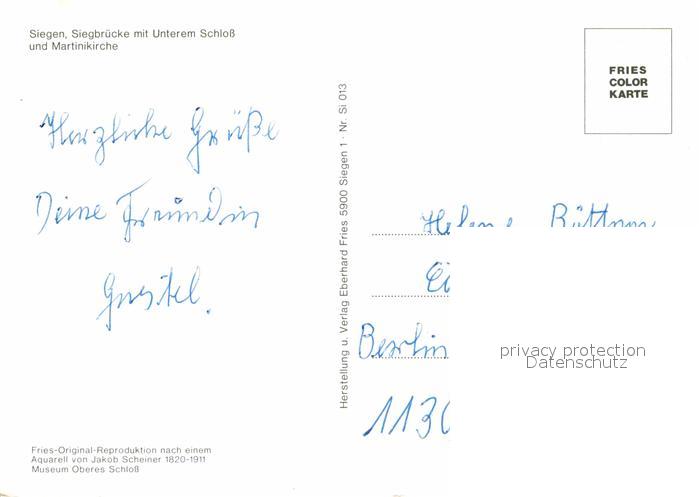 Siegen, Siegbrücke mit Unterem Schloß
und Martinikirche
FRIES
COLOR
KARTE
Herzliche Grüße
Deine Freundin
Gustel.
Herstellung u. Verlag Eberhard Fries 5900 Siegen 1 · Nr. Si 013
Helene
Berlin
113
privacy protection
Datenschutz
Fries-Original-Reproduktion nach einem
Aquarell von Jakob Scheiner 1820-1911
Museum Oberes Schloß